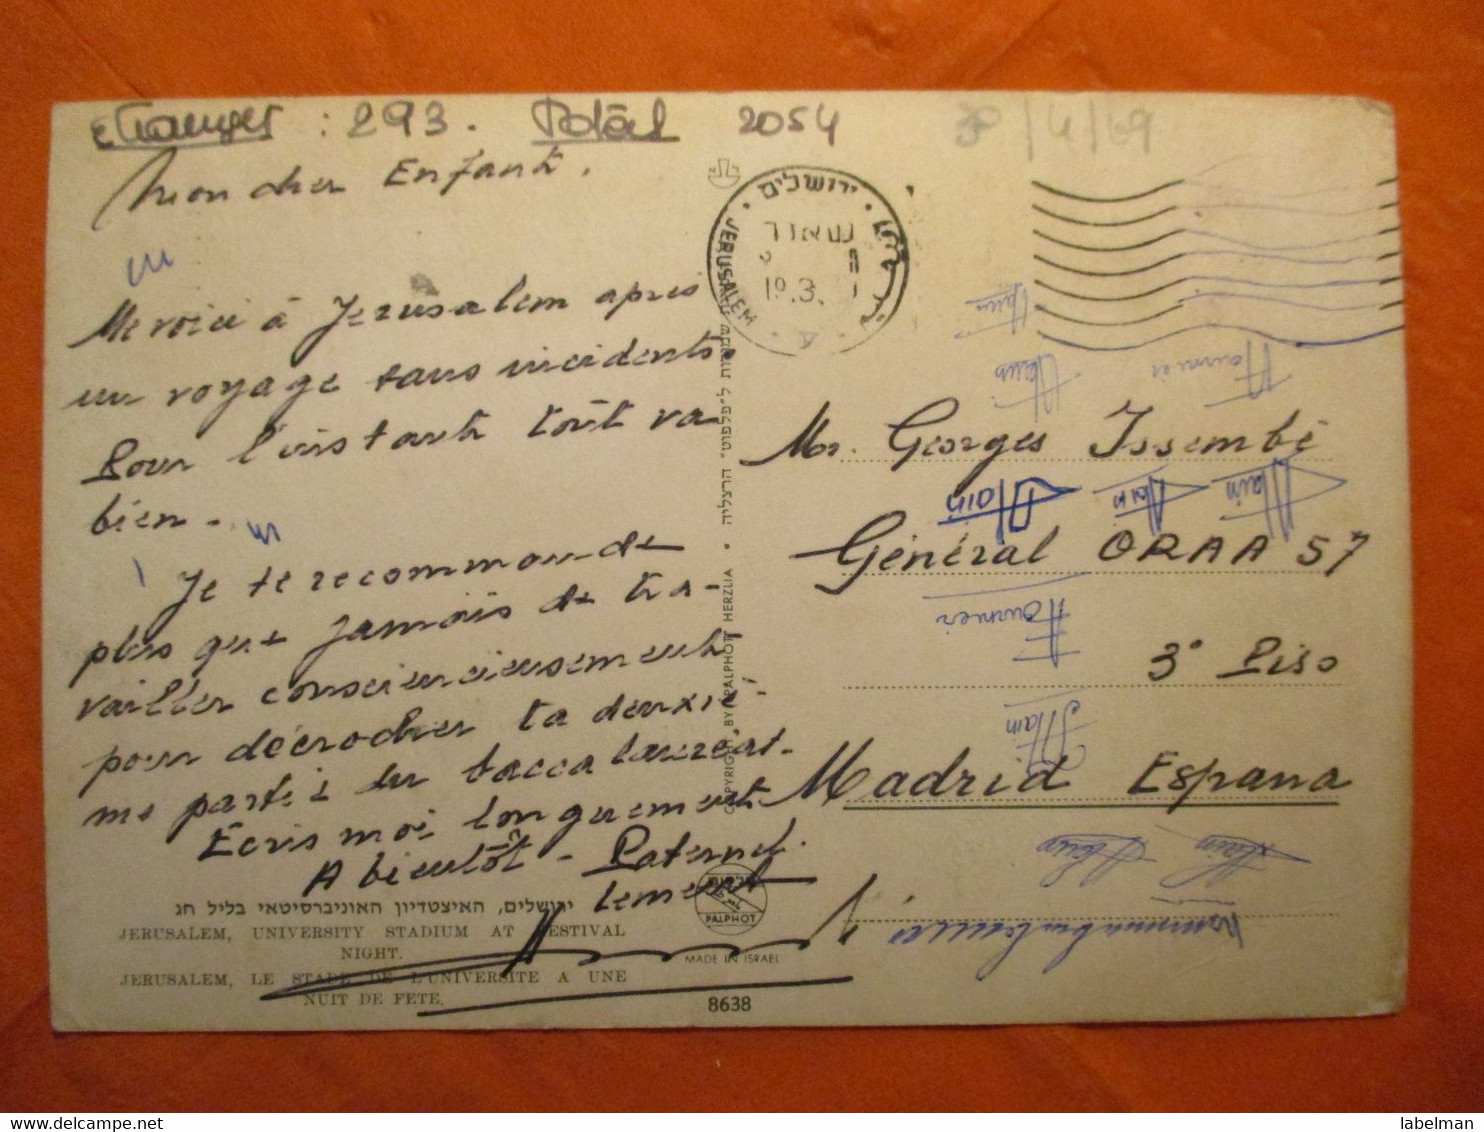 etranges : 293. Total 2054 30/4/69
Mon cher Enfant,
Me voici à Jerusalem apres
un voyage sans incidents.
Pour l'instant tout va
bien.
Je te recommande
plus que jamais de tra-
vailler consciencieusement
pour décrocher ta deuxiè-
me partie du baccalaureat.
Ecris moi longuement
A bientôt - Paternel
lement
ירושלים, האיצטדיון האוניברסיטאי בליל חג
JERUSALEM, UNIVERSITY STADIUM AT FESTIVAL
NIGHT.
JERUSALEM, LE STADE DE L'UNIVERSITE A UNE
NUIT DE FETE.
COPYRIGHT BY PALPHOT HERZLIA • ל"פלפוט" הרצליה
PALPHOT
MADE IN ISRAEL
8638
ירושלים
JERUSALEM
19.3.
Mr. Georges Issembé
Général ORAA 57
3° Piso
Madrid Espana
Main Main Main